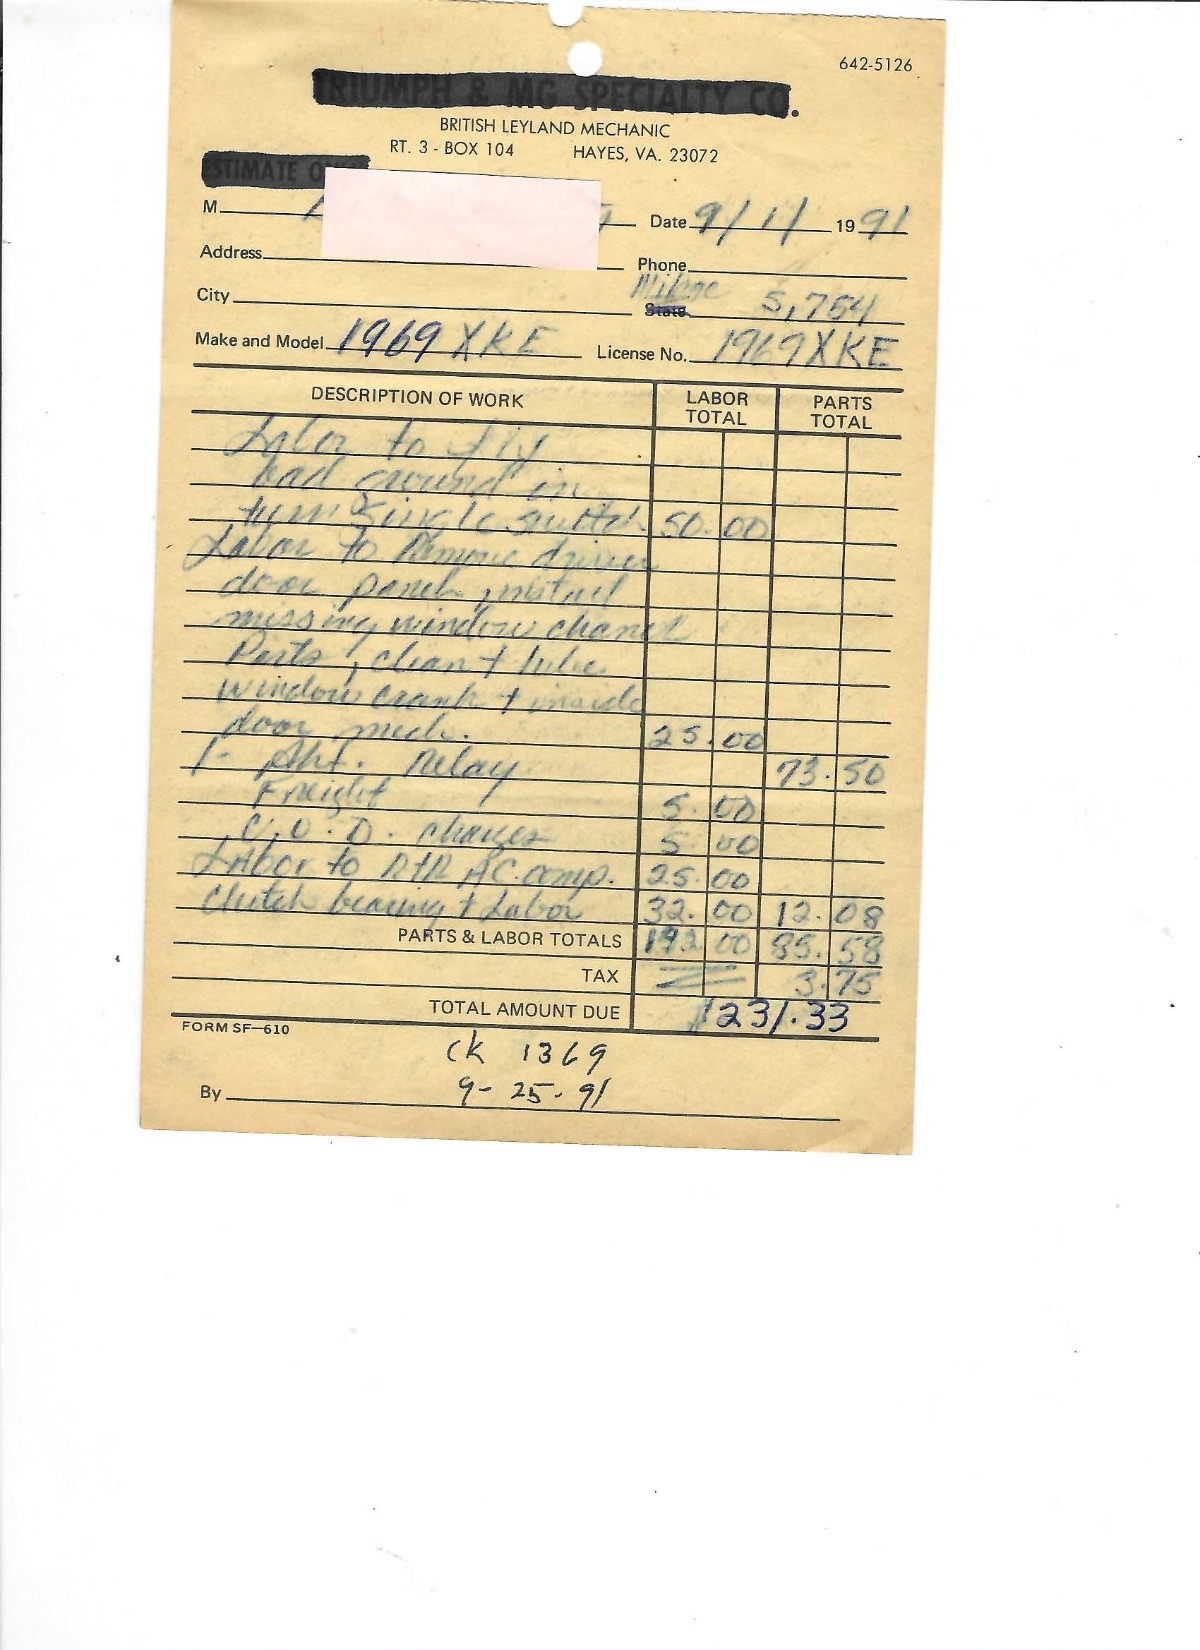 642-5126
TRIUMPH & MG SPECIALTY CO.
BRITISH LEYLAND MECHANIC
RT. 3 - BOX 104 HAYES, VA. 23072
ESTIMATE ONLY
M Date 9/1/ 19 91
Address Phone
City Milage State 5,754
Make and Model 1969 XKE License No. 1969 XKE
DESCRIPTION OF WORK LABOR TOTAL PARTS TOTAL
Labor to fix
bad ground in
turn single switch 50.00
Labor to Remove driver
door panel, install
missing window chanel
Parts, clean + lube
window crank + inside
door mech. 25.00
1- Relay 73.50
Freight 5.00
C.O.D. charges 5.00
Labor to R+R AC comp. 25.00
Clutch bearing + Labor 32.00 12.08
PARTS & LABOR TOTALS 192.00 85.58
TAX 3.75
TOTAL AMOUNT DUE $231.33
FORM SF-610
CK 1369
9-25-91
By